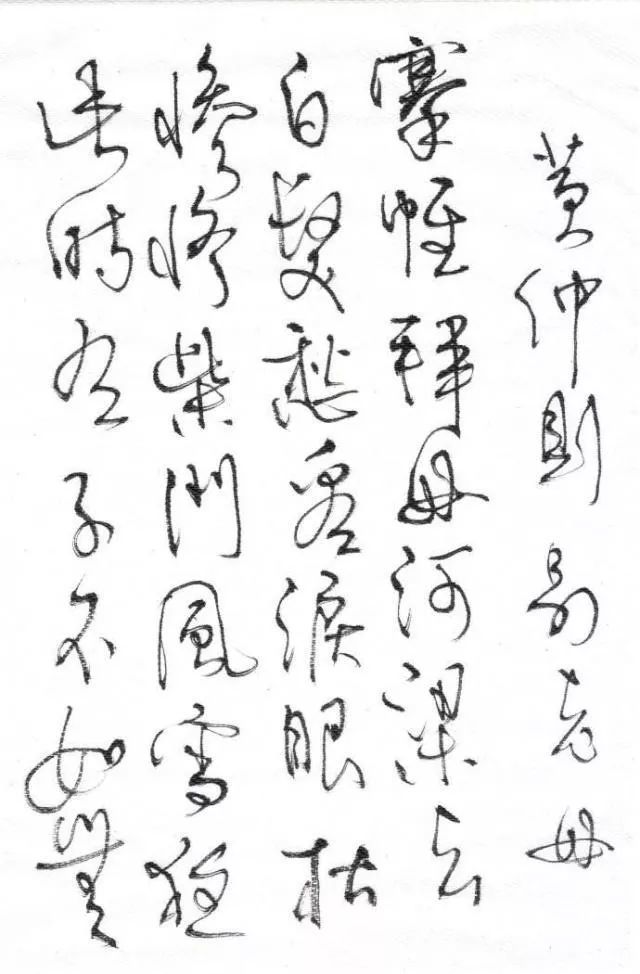 黄仲則別老母
搴帷拜母河梁去
白髮愁看淚眼枯
慘慘柴門風雪夜
此時有子不如無